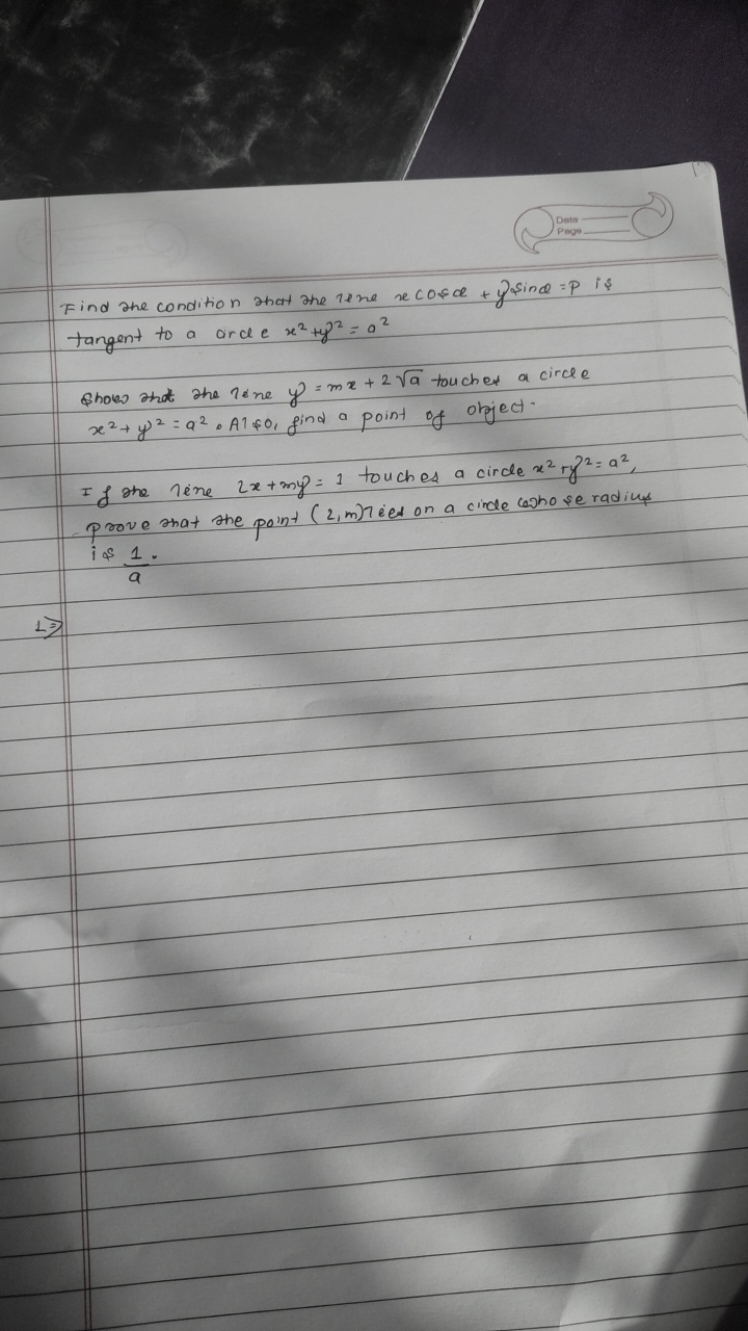 Date
Page
Find the condition that the line x cosα + y sinα = p is
tangent to a circle x² + y² = a²
Show that the line y = mx + 2√a touches a circle
x² + y² = a². Also, find a point of object.
If the line lx + my = 1 touches a circle x² + y² = a²,
prove that the point (l, m) lies on a circle whose radius
is 1/a.
1⇒